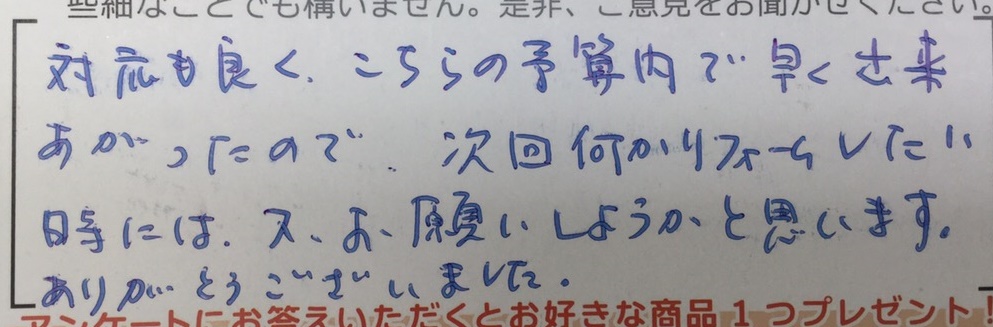 些細なことでも構いません。是非、ご意見をお聞かせください。
対応も良く、こちらの予算内で早く出来
あがったので、次回何かリフォームしたい
時には、又、お願いしようかと思います。
ありがとうございました。
アンケートにお答えいただくとお好きな商品1つプレゼント!